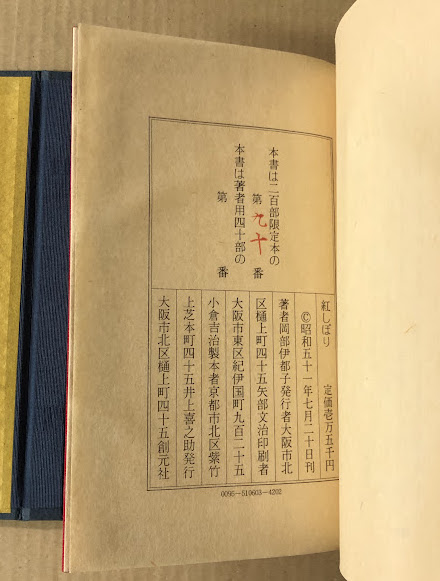 本書は二百部限定本の
第九十番
本書は著者用四十部の
第 番
紅しぼり 定価壱万五千円
©昭和五十一年七月二十日刊
著者岡部伊都子発行者大阪市北
区樋上町四十五矢部文治印刷者
大阪市東区紀伊国町九百二十五
小倉吉治製本者京都市北区紫竹
上芝本町四十五井上喜之助発行
大阪市北区樋上町四十五創元社
0095—510603—4202